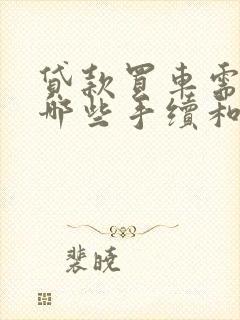 贷款买车需
哪些手续和
裴晓